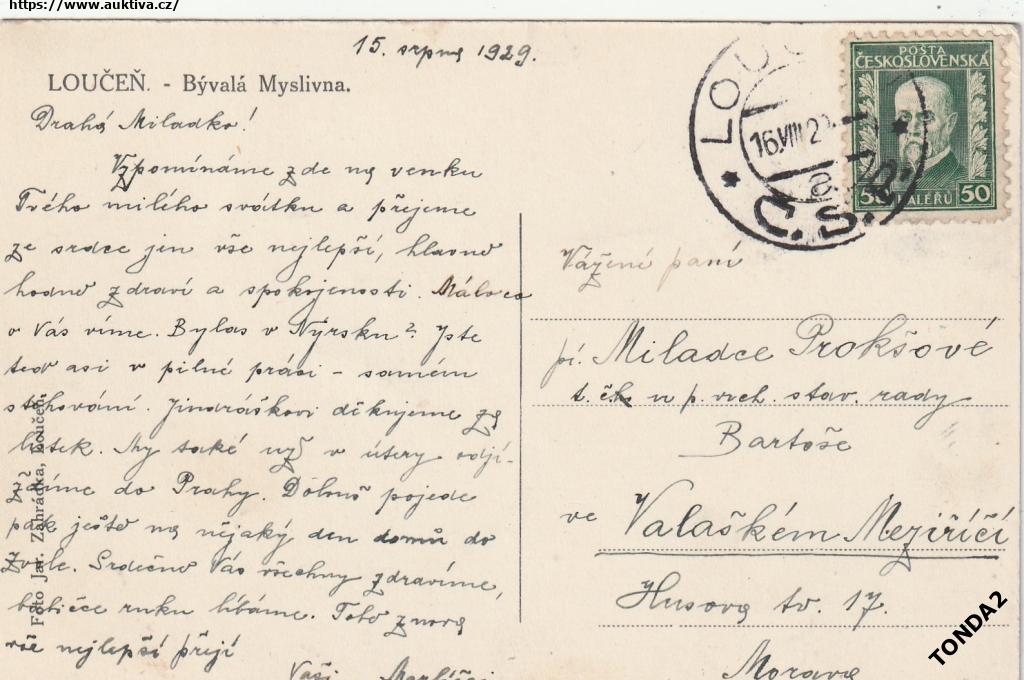 https://www.auktiva.cz/
15. srpna 1929.
LOUČEŇ. - Bývalá Myslivna.
Drahá Miladko!
Vzpomínáme zde na venku
Tvého milého svátku a přejeme
ze srdce jen vše nejlepší, hlavně
hodně zdraví a spokojenosti. Máloco
o Vás víme. Bylas v Nýrsku? Jste
teď asi v pilné práci - samém
stěhování. Jindráškovi děkujeme za
lístek. My také již v úterý odjí-
ždíme do Prahy. pojede
pak ještě na nějaký den domů do
Zvole. Srdečně Vás všechny zdravíme,
babičce ruku líbáme. Toto znova
vše nejlepší přejí
Vaši
Foto Jar. Zahrádka, Loučeň.
POŠTA
ČESKOSLOVENSKÁ
50 HALÉŘŮ 50
LOUČ
16.VIII.2
Č.S.
Vážená paní
pí. Miladce Prokšové
t. č. u p. vrch. stav. rady
Bartoše
ve Valaškém Meziříčí
Husova tř. 17.
Morava
TONDA2